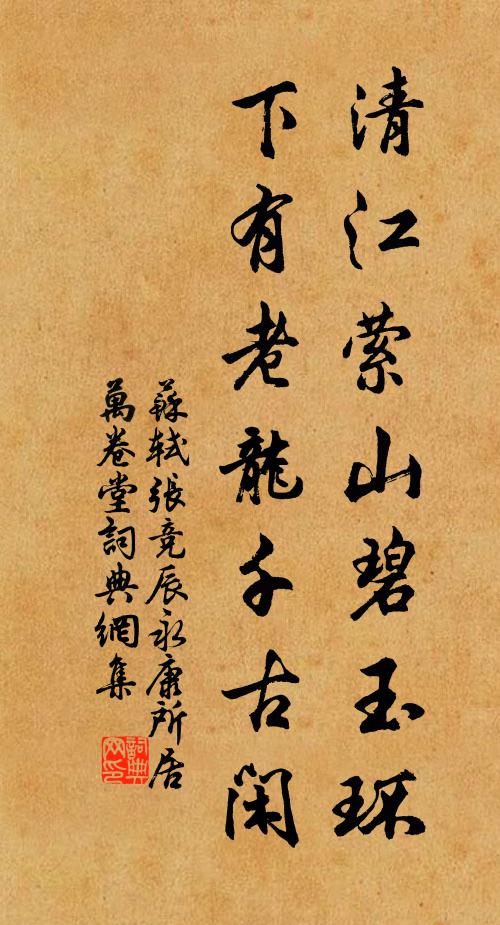 清江縈山碧玉環
下有老龍千古閑
蘇軾張競辰永康所居
萬卷堂詞典網集
詞典網印